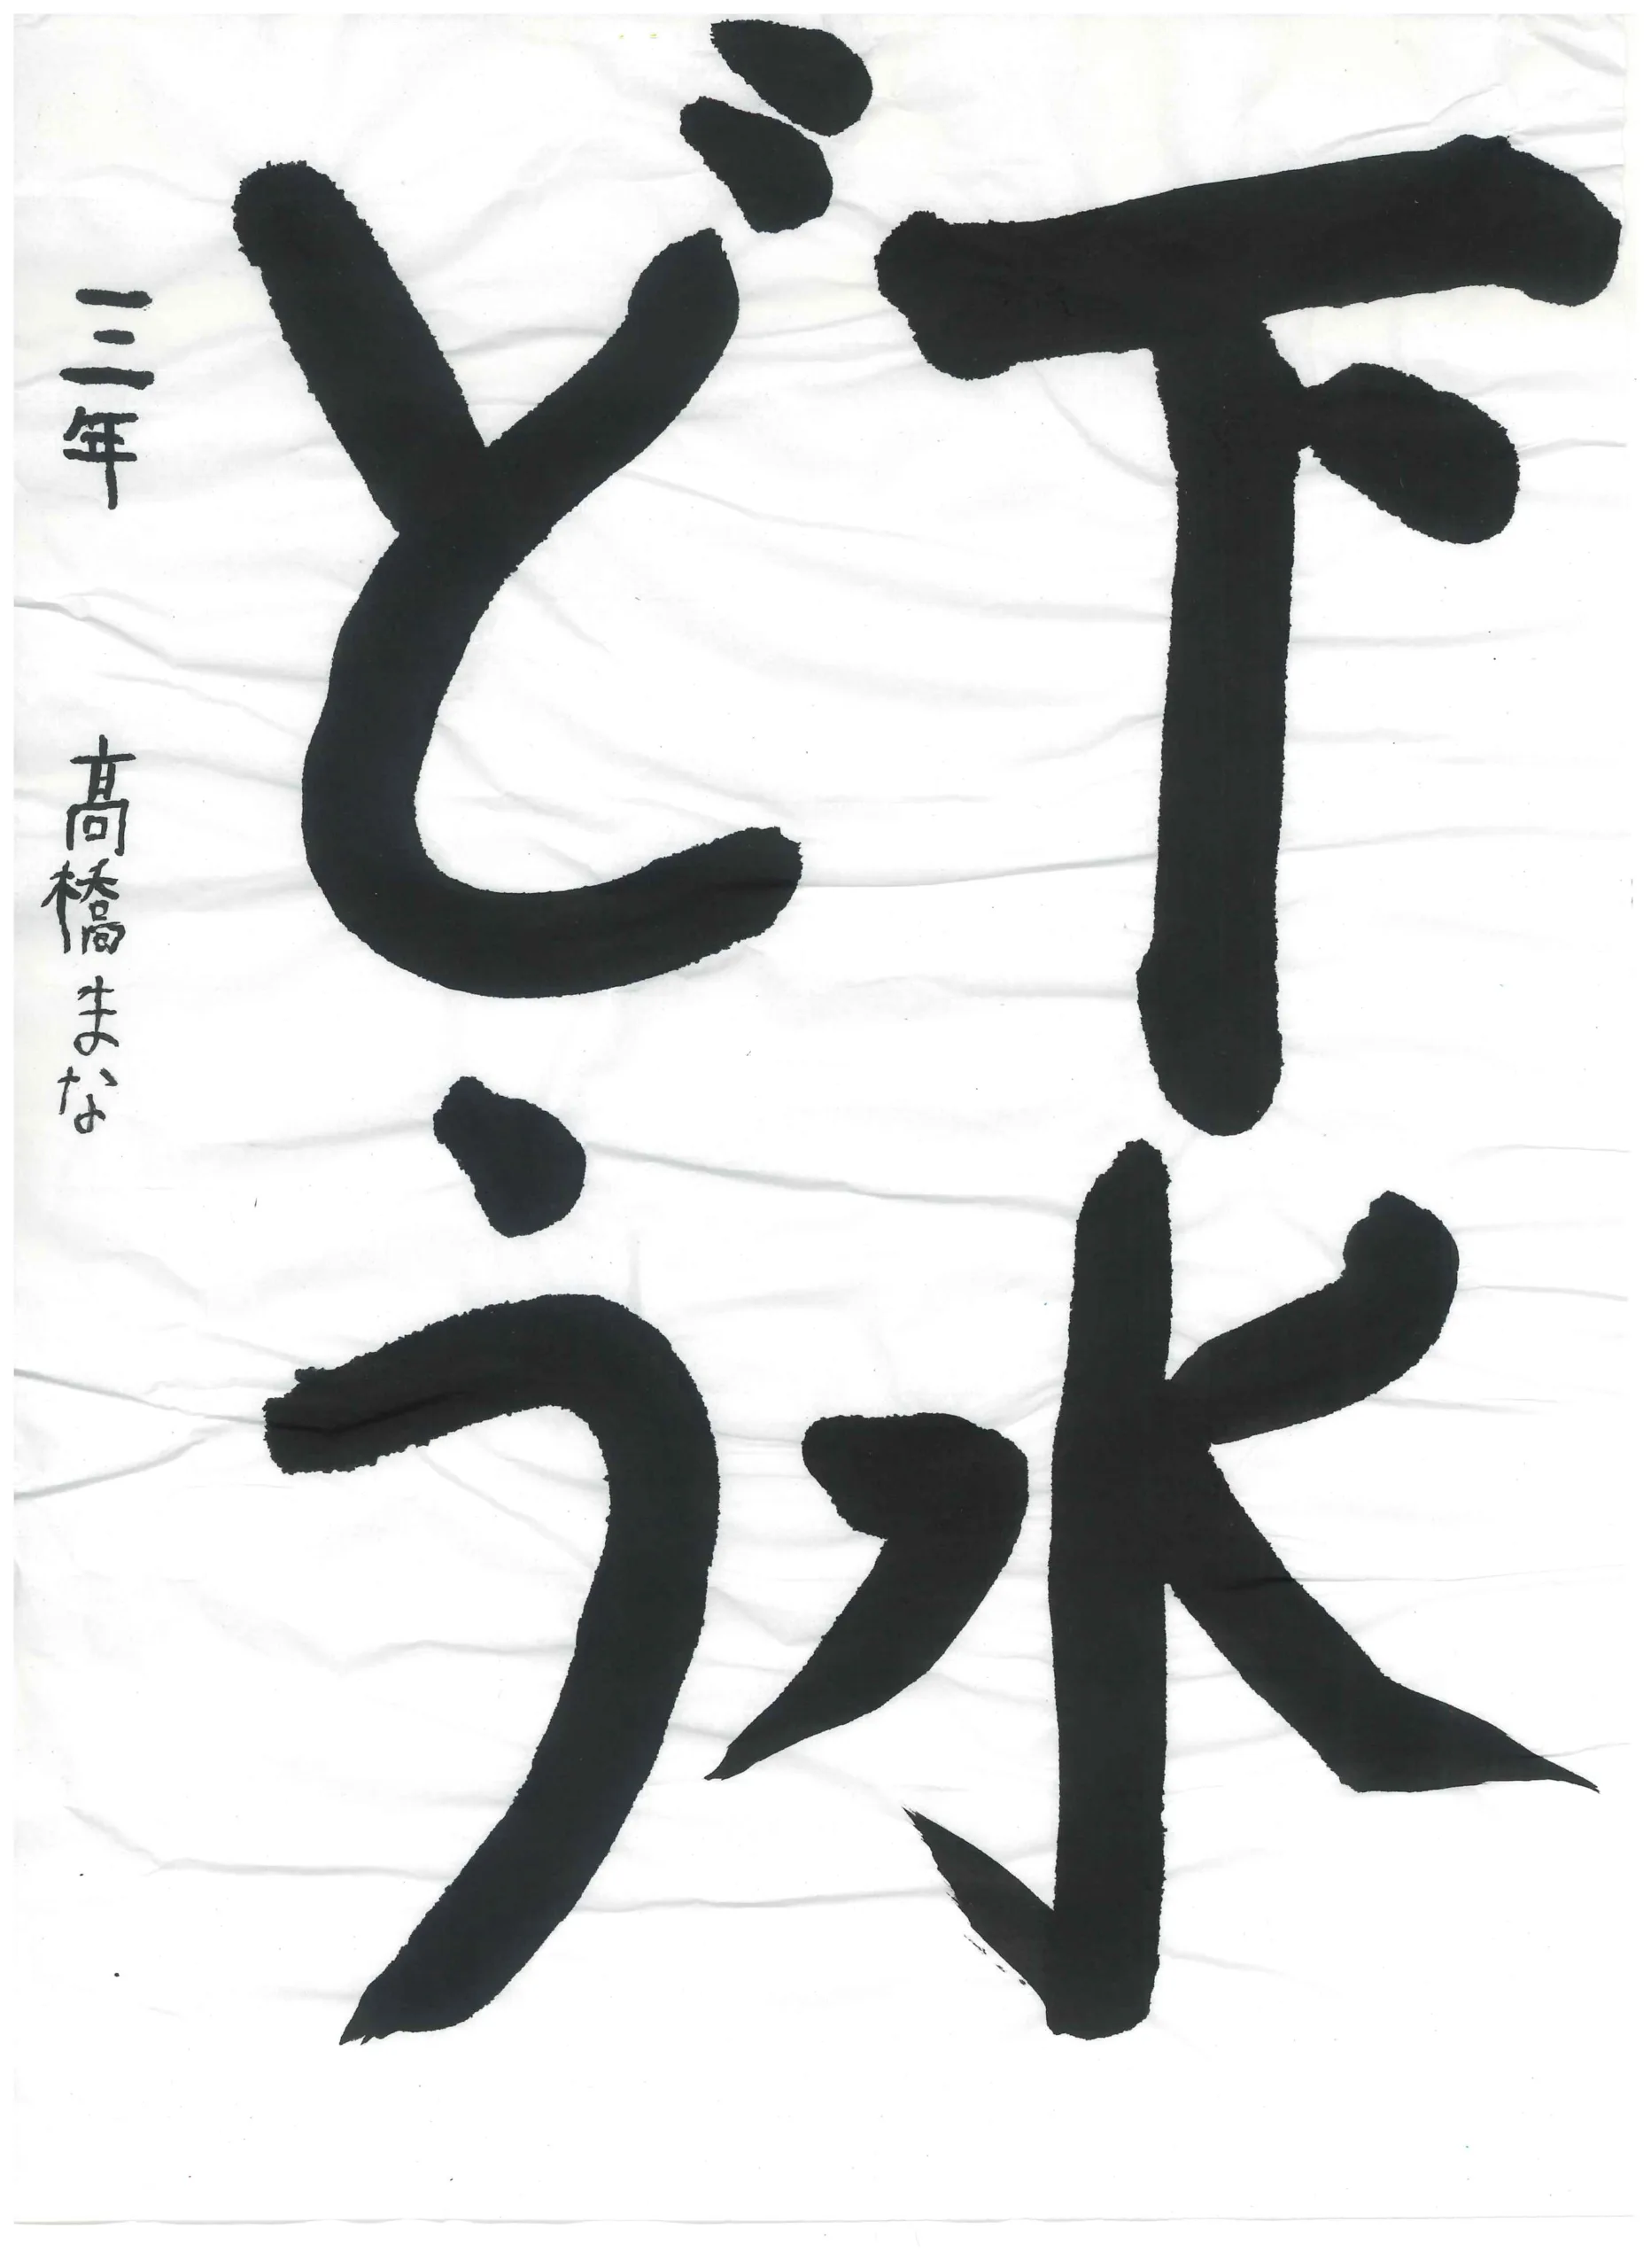 下水
どう
三年 髙橋まな